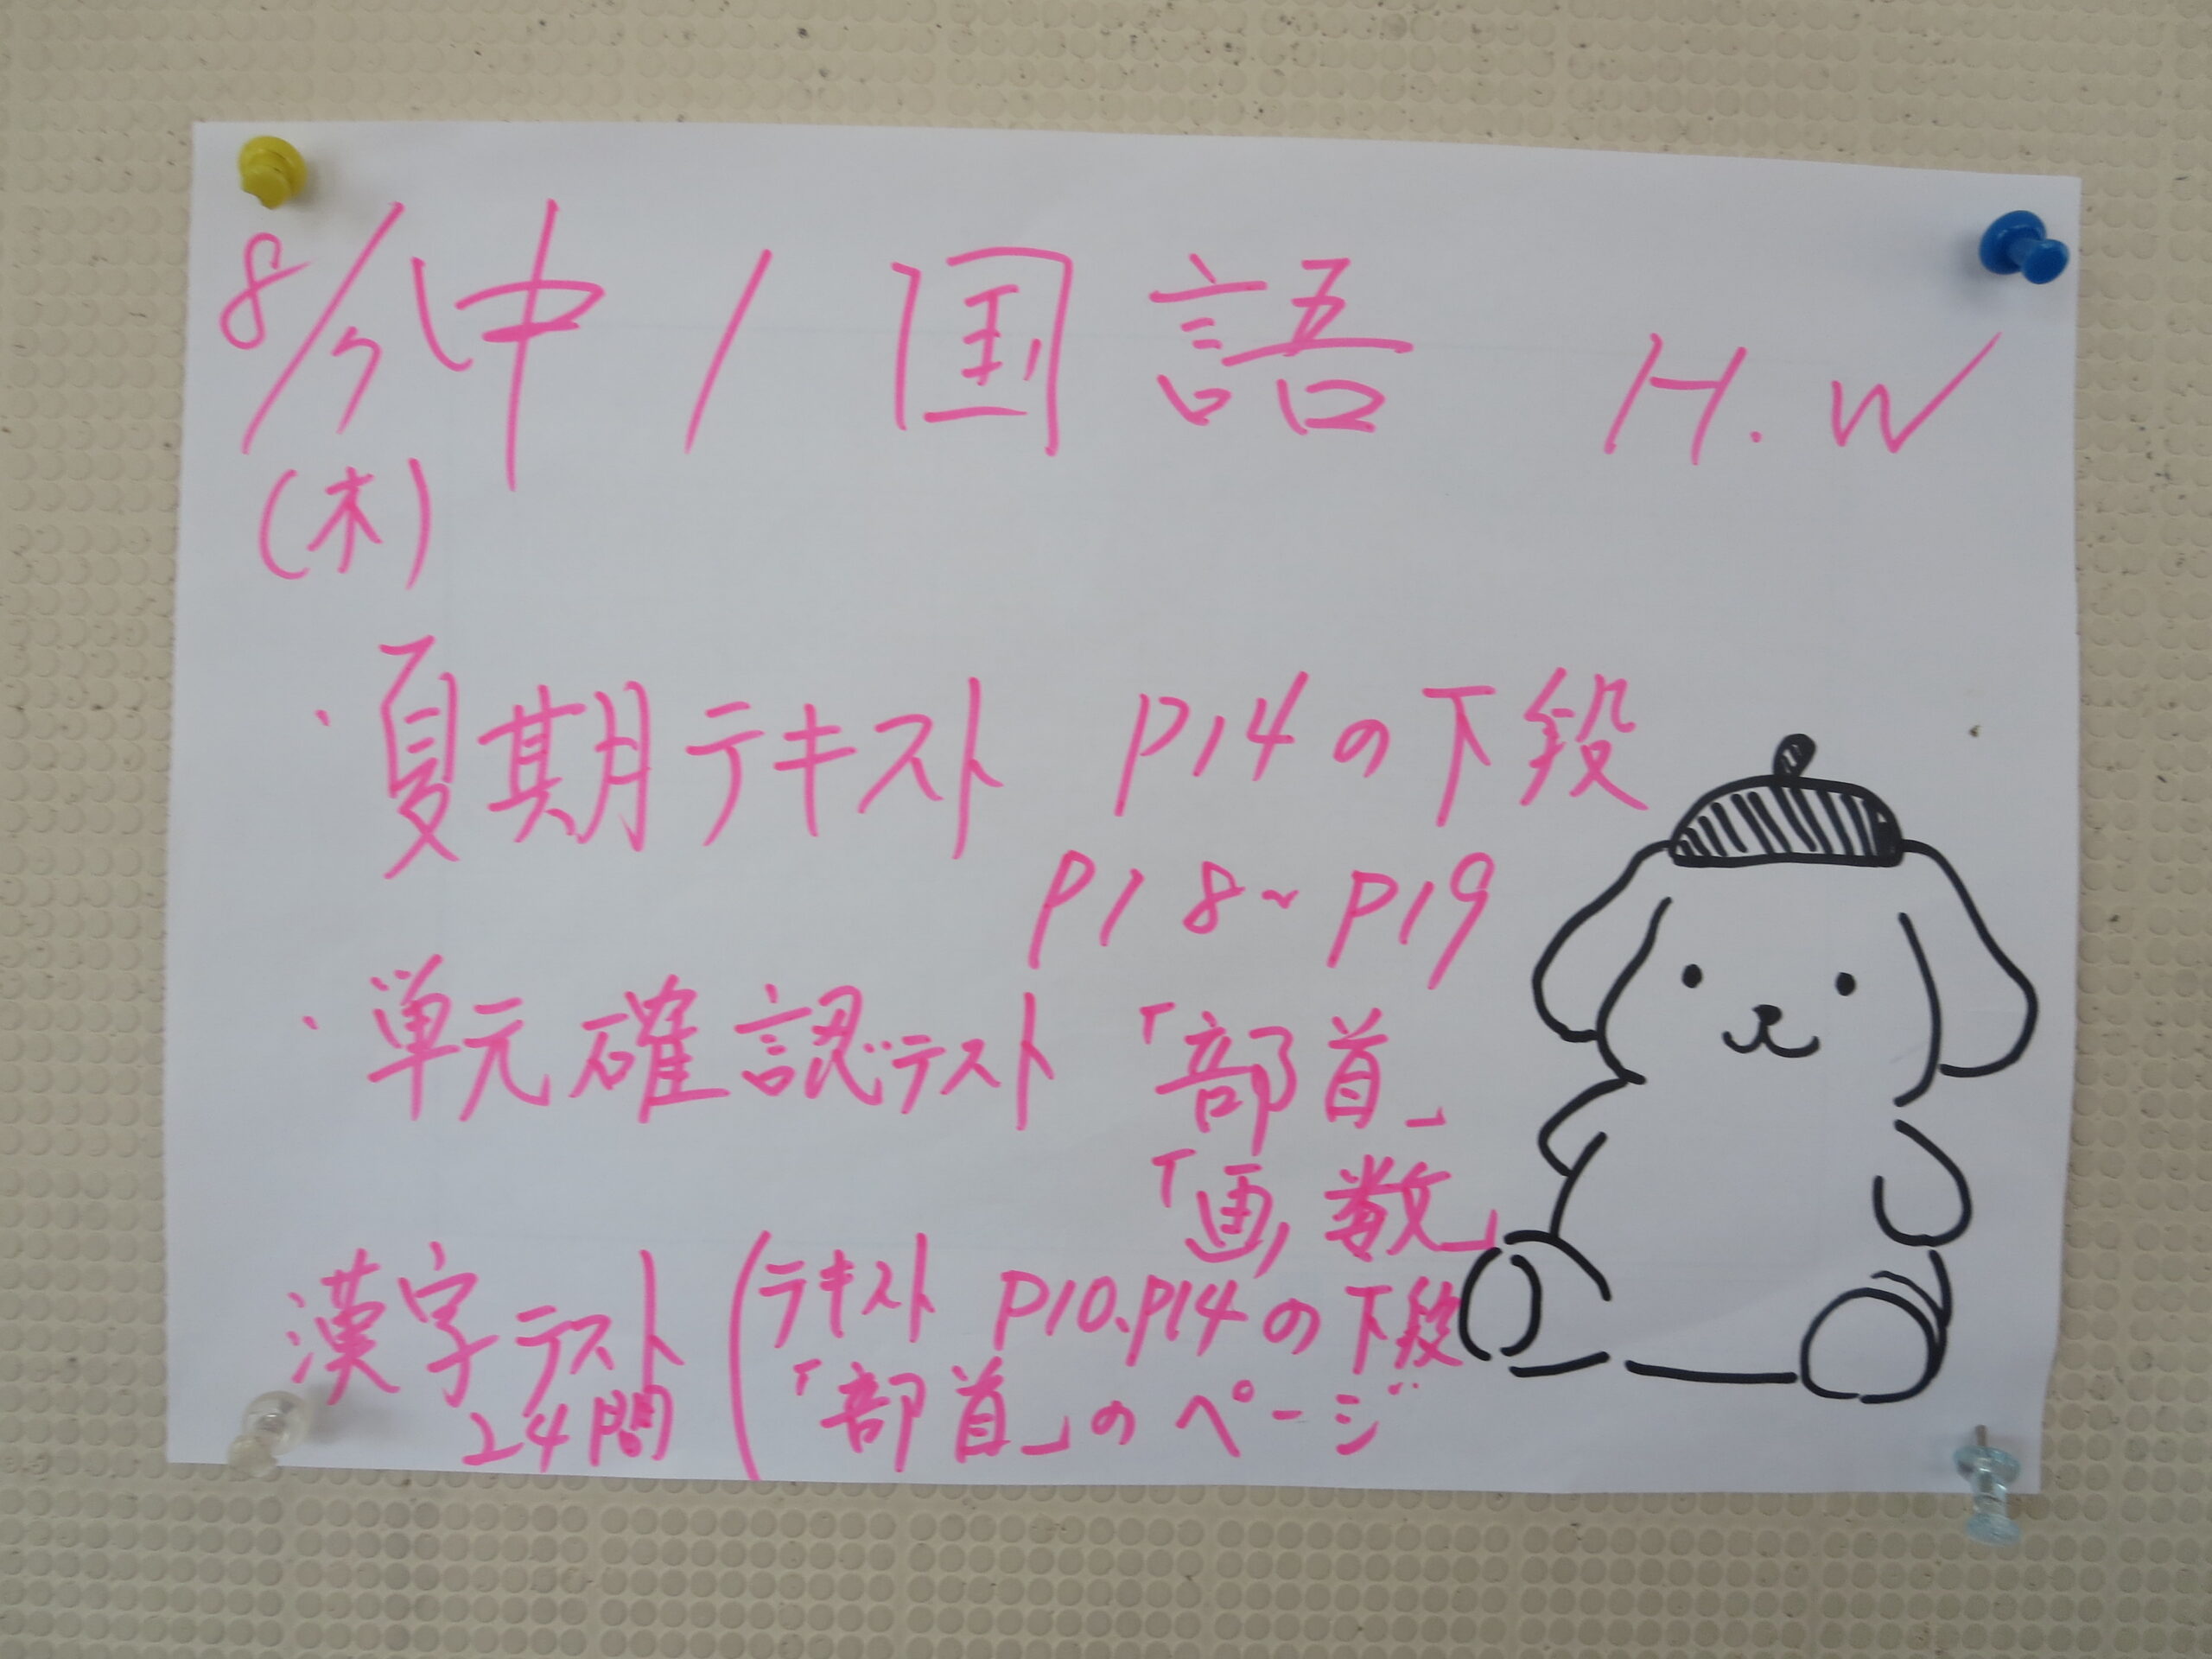 8/7 中1 国語 H.W
(木)
・夏期テキスト P14の下段
P18~P19
・単元確認テスト 「部首」
「画数」
漢字テスト (テキスト P10、P14の下段
24問 「部首」のページ